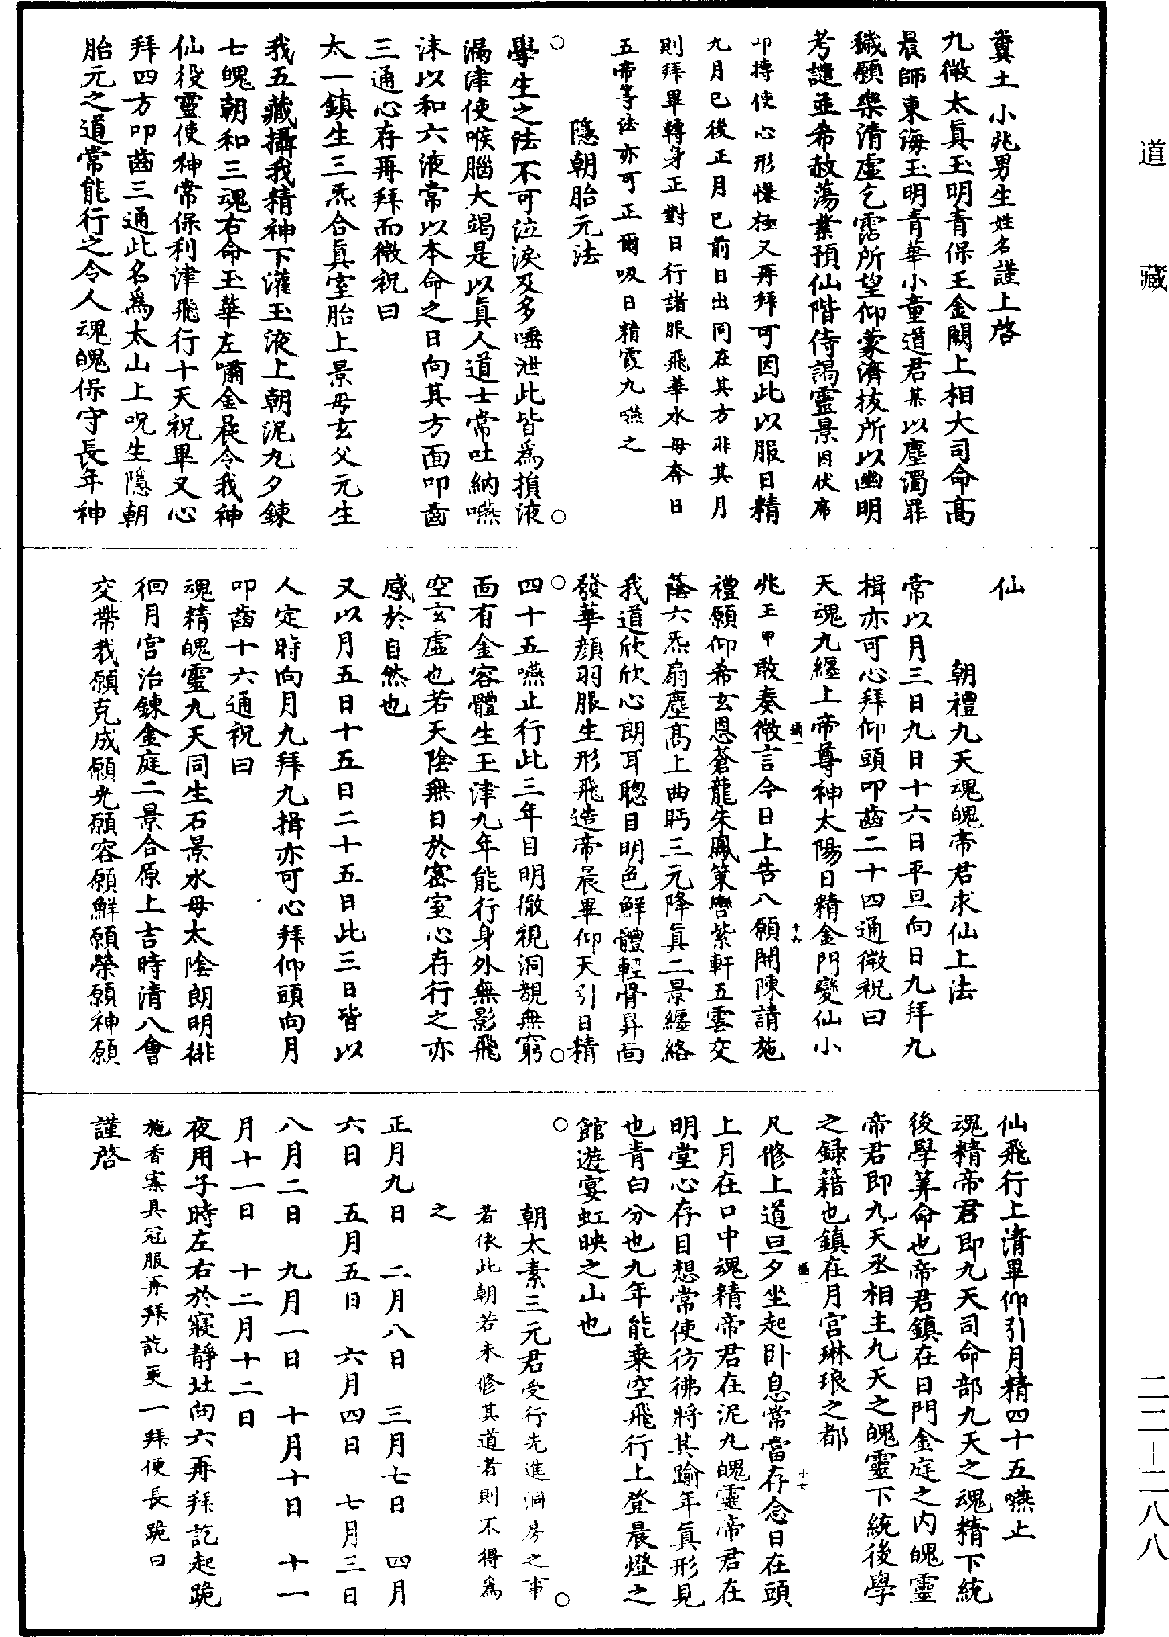 道藏
糞土小兆男生姓名謹上啓
九微太真玉明青保王金闕上相大司命高
晨師東海玉明青華小童道君某以塵濁罪
穢願樂清虛乞霑所望仰蒙濟拔所以幽明
考讁並希赦蕩業預仙階侍謁靈景因伏席
叩搏使心形慷極又再拜可因此以服日精
九月已後正月已前日出同在其方非其月
則拜畢轉身正對日行諸服飛華水母奔日
五帝等法亦可正爾吸日精霞九嚥之
隱朝胎元法
學生之法不可泣淚及多唾泄此皆為損液
漏津使喉腦大竭是以真人道士常吐納嚥
沫以和六液常以本命之日向其方面叩齒
三通心存再拜而微祝曰
太一鎮生三炁合真室胎上景母玄父元生
我五藏攝我精神下灌玉液上朝泥丸夕鍊
七魄朝和三魂右命玉華左嘯金晨令我神
仙役靈使神常保利津飛行十天祝畢又心
拜四方叩齒三通此名為太山上呪生隱朝
胎元之道常能行之令人魂魄保守長年神
仙
朝禮九天魂魄帝君求仙上法
常以月三日九日十六日平旦向日九拜九
揖亦可心拜仰頭叩齒二十四通微祝曰
天魂九纏上帝尊神太陽日精金門變仙小
兆王甲敢奏微言今日上告八願開陳請施
禮願仰希玄恩蒼龍朱鳳策轡紫軒五雲交
蔭六炁扇塵高上曲眄三元降真二景纏絡
我道欣欣心朗耳聰目明色鮮體輕骨昇面
發華顏羽服生形飛造帝晨畢仰天引日精
四十五嚥止行此三年目明徹視洞覩無窮
面有金容體生玉津九年能行身外無影飛
空玄虛也若天陰無日於密室心存行之亦
感於自然也
又以月五日十五日二十五日此三日皆以
人定時向月九拜九揖亦可心拜仰頭向月
叩齒十六通祝曰
魂精魄靈九天同生石景水母太陰朗明徘
徊月宮治鍊金庭二景合原上吉時清八會
交帶我願克成願光願容願鮮願榮願神願
仙飛行上清畢仰引月精四十五嚥止
魂精帝君即九天司命部九天之魂精下統
後學筭命也帝君鎮在日門金庭之內魄靈
帝君即九天丞相主九天之魄靈下統後學
之録籍也鎮在月宮琳琅之都
凡修上道旦夕坐起卧息常當存念日在頭
上月在口中魂精帝君在泥丸魄靈帝君在
明堂心存目想常使彷彿將其踰年真形見
也青白分也九年能乘空飛行上登晨燈之
館遊宴虹映之山也
朝太素三元君受行先進洞房之事
者依此朝若未修其道者則不得為
之
正月九日　二月八日　三月七日　四月
六日　五月五日　六月四日　七月三日
八月二日　九月一日　十月十日　十一
月十一日　十二月十二日
夜用子時左右於寢靜燒向六再拜訖起跪
施香案具冠服再拜訖更一拜便長跪曰
謹啓
二二—二八八